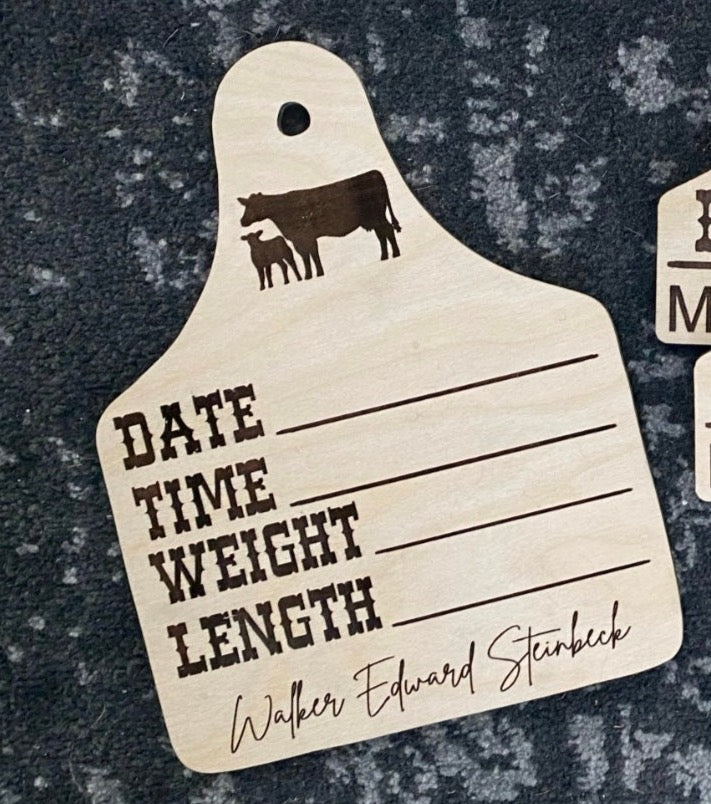 DATE
TIME
WEIGHT
LENGTH
Walker Edward Steinbeck
M